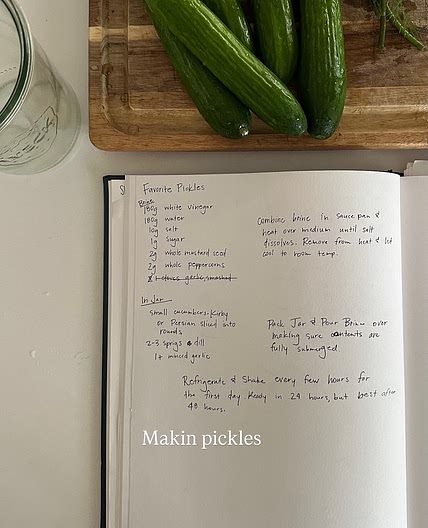 Favorite Pickles
Brine
180g white vinegar
180g water
10g salt
1g sugar
2g whole mustard seed
2g whole peppercorns
cloves garlic, smashed
combine brine in sauce pan &
heat over medium until salt
dissolves. Remove from heat & let
cool to room temp.
In Jar
small cucumbers-Kirby
or Persian sliced into
rounds
2-3 sprigs dill
1t minced garlic
Pack Jar & Pour Brine over
making sure contents are
fully submerged.
Refrigerate & Shake every few hours for
the first day Ready in 24 hours, but best after
48 hours.
Makin pickles